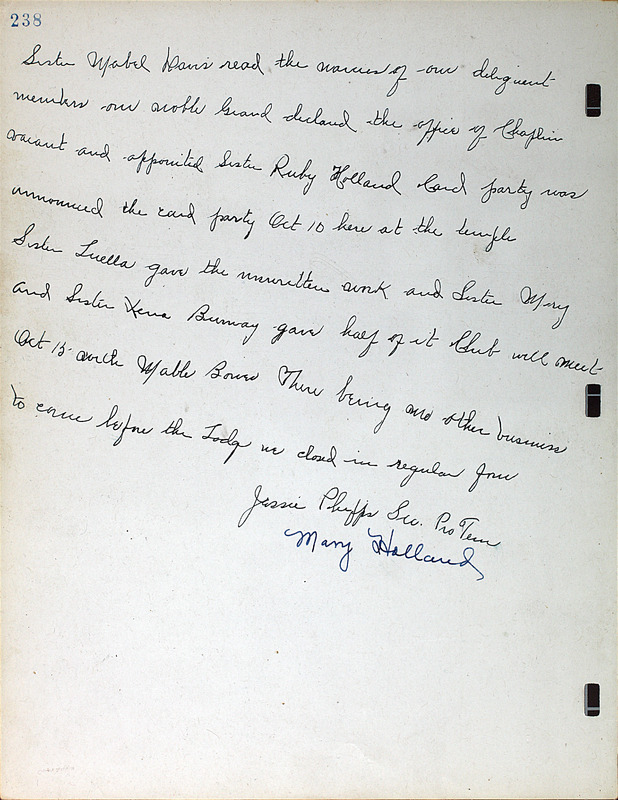 238
Sister Mabel Davis read the names of our deliquent
members our noble Grand declared the office of Chaplin
vacant and appointed Sister Ruby Holland Card party was
announced the card party Oct 10 here at the temple
Sister Luella gave the unwritten work and Sister Mary
and Sister Xena gave half of it Club will meet
Oct 15 with Mable Bower There being no other business
to come before the Lodge we closed in regular form
Jessie Phipps Sec. Pro Tem
Mary Holland